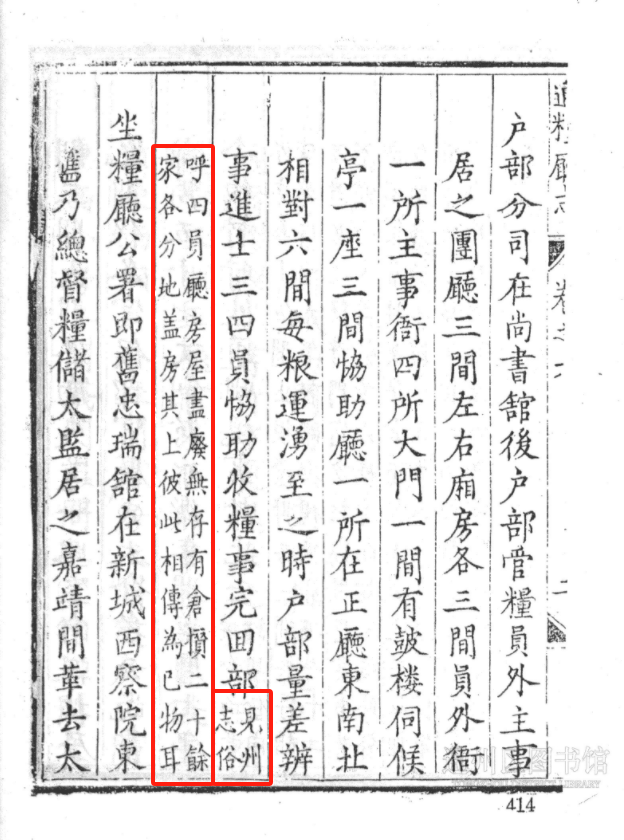 通糧廳志 卷之
户部分司在尚書舘後户部管糧員外主事
居之團廳三間左右廂房各三間員外衙
一所主事衙四所大門一間有鼓楼伺候
亭一座三間恊助廳一所在正廳東南北
相對六間每粮運湧至之時户部量差辦
事進士三四員恊助收糧事完囬部
見州
志俗
呼四員廳房屋盡廢無存有倉攢二十餘
家各分地盖房其上彼此相傳為已物耳
坐糧廳公署即舊忠瑞舘在新城西察院東
舊乃總督糧儲太監居之嘉靖間革去太
州图书馆
LIBRARY
414